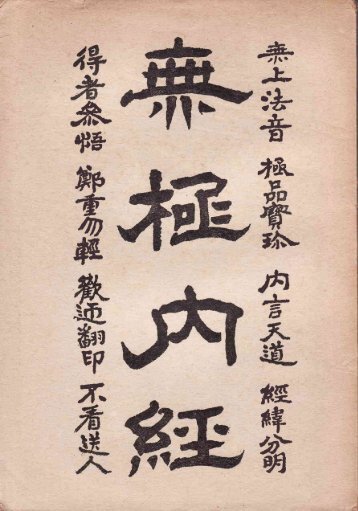 無上法音 極品寶珍 內言天道 經緯分明
無極內經
得者參悟 鄭重勿輕 歡迎翻印 不看送人